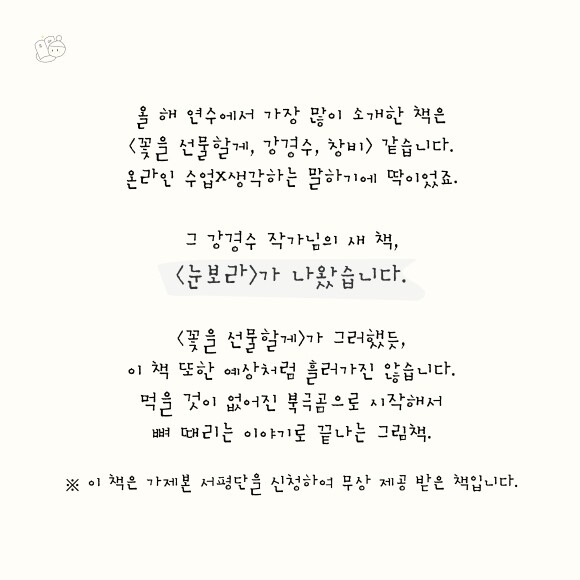 올 해 연수에서 가장 많이 소개한 책은
<꽃을 선물할게, 강경수, 창비> 같습니다.
온라인 수업X생각하는 말하기에 딱이었죠.
그 강경수 작가님의 새 책,
<눈보라>가 나왔습니다.
<꽃을 선물할게>가 그러했듯,
이 책 또한 예상처럼 흘러가진 않습니다.
먹을 것이 없어진 북극곰으로 시작해서
뼈 때리는 이야기로 끝나는 그림책.
※ 이 책은 가제본 서평단을 신청하여 무상 제공 받은 책입니다.